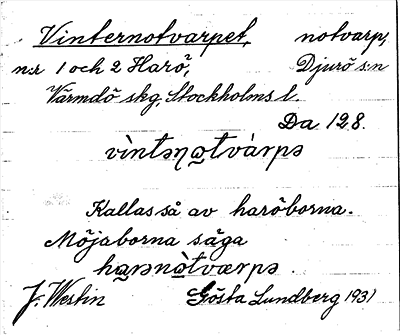 Vinternotvarpet, notvarp,
n:r 1 och 2 Harö, Djurö s:n
Värmdö skg, Stockholms l.
Da 128.
vìntəɳω̲tvàrpə
Kallas så av haröborna.
Möjaborna säga
ha̲rənὼ̲tværpə.
J. Westin Gösta Lundberg 1931